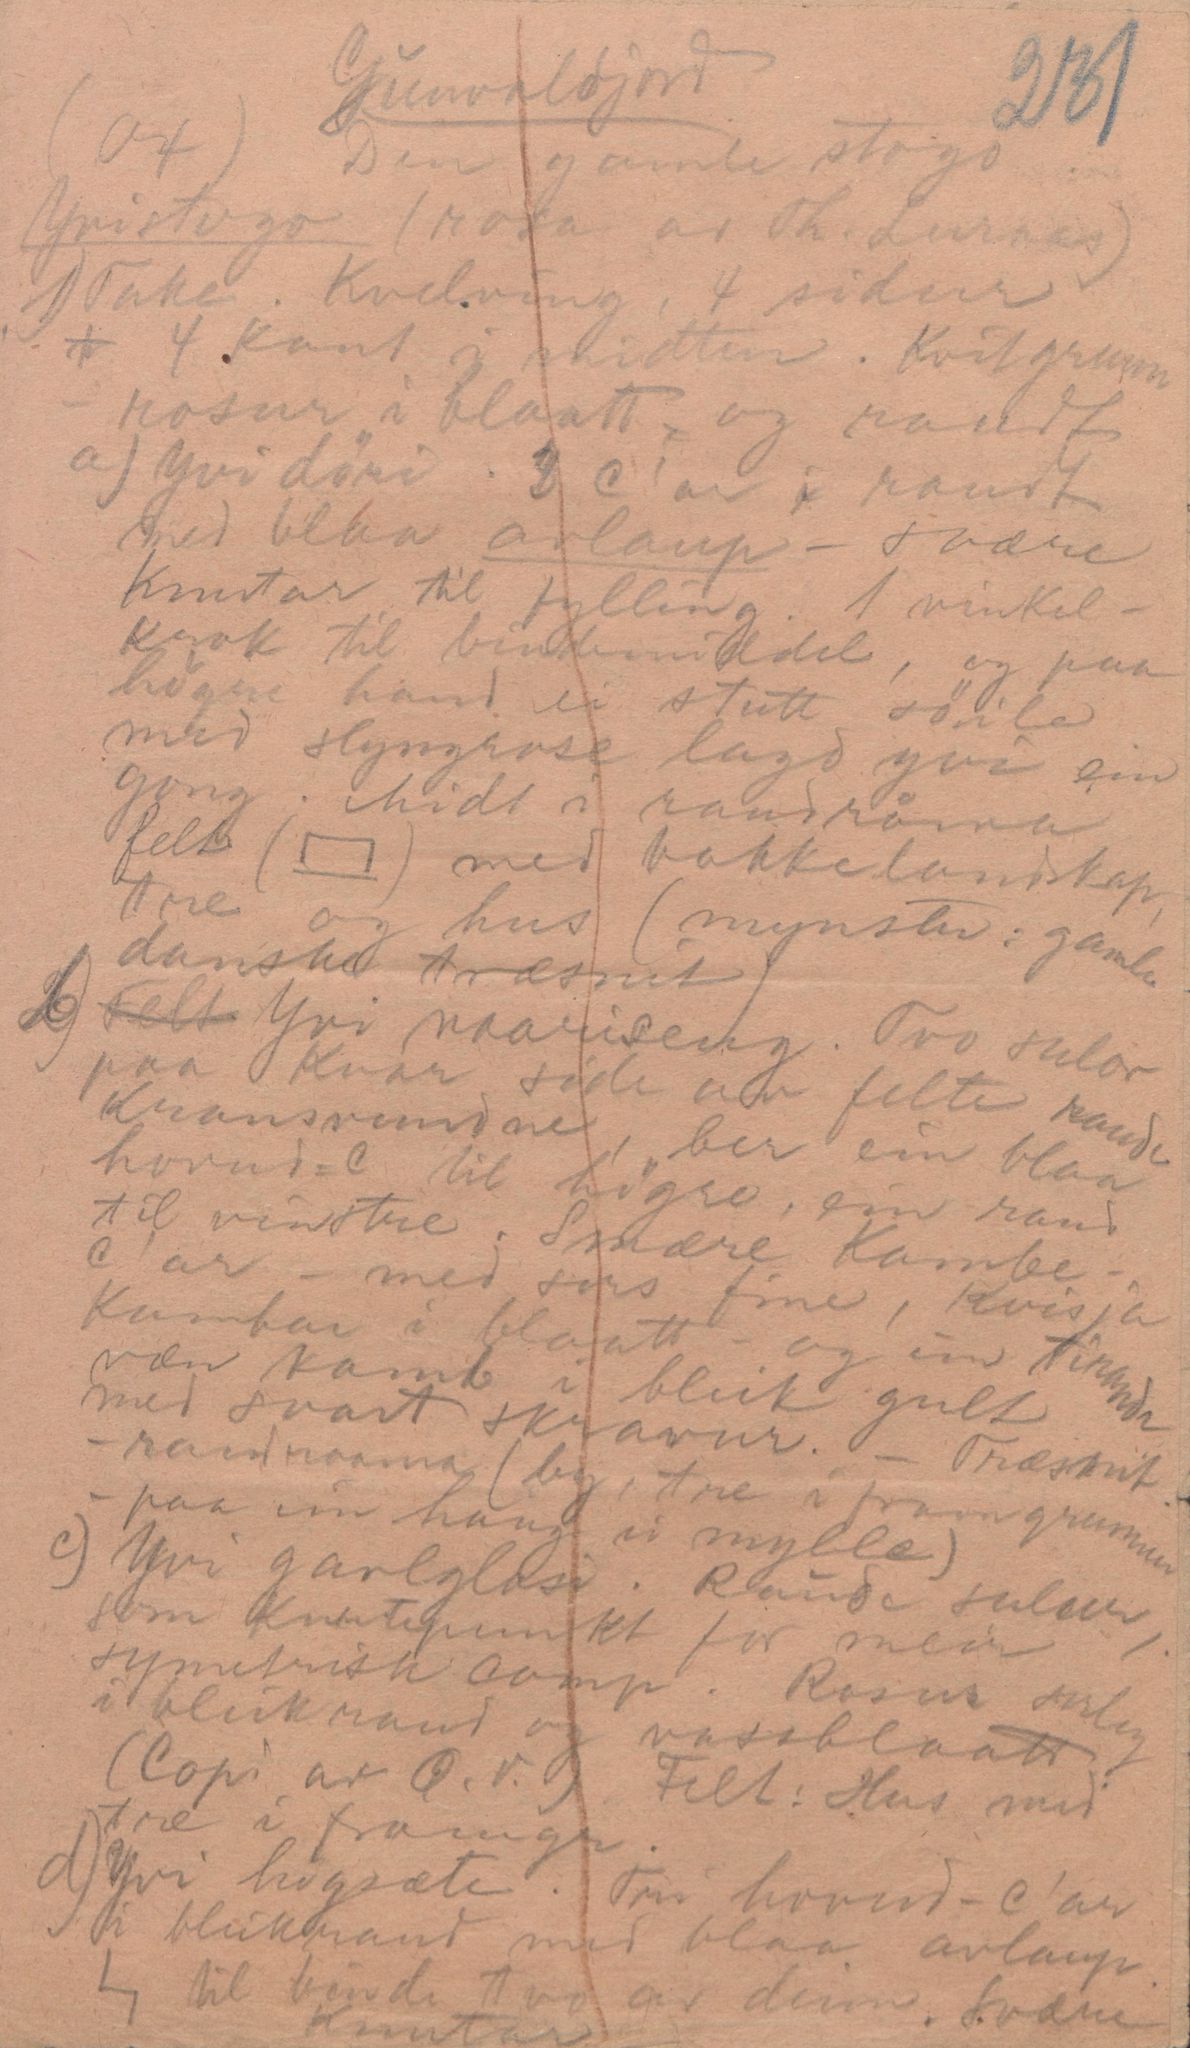 281
Gunvaldjord
(Ox) Den gamle stogo
Yvistogo (rosa av Th. Luraas)
1) Take. Kvelving, 4 sidur
4 kant i midten. Kvitgrunn
- rosur i blaatt, og raudt
a) Yvi döri. 3 C'ar i raudt
med blaa avlaup - svære
Knutar til fylling. 1 vinkel-
krok til bindemiddel, og paa
högre hand ei stutt söile
med slyngrose lagd yvi ein
gong. Midt i raudråma
felt (▭) med bakkelandskap,
tre og hus (mynster: gamle
danske træsnit)
b) Felt Yvi naariseng. Tvo sulor
paa kvar side av felte raude
Kransvundne, ber ein blaa
hovud=C til högre, ein raud
til vinstre. Smære Kambe-
C'ar - med sers fine, kvisja
Kambar i blaatt - og ein tirande
væn kamb i bleik gult
med svart skravur. - Træsnit
- raudraama (by, tre i framgrunnen
- paa ein haug ei mylle)
c) Yvi gavlglasi. Raude sulur,
som knutepunkt for meir
symetrisk comp. Rosur serleg
i bleikraud og vassblaatt.
(Copi av O.V.) Felt: Hus med
tre i framgr.
d) Yvi högsæte. Tri hovud-C'ar
i bleikraud med blaa avlaup.
til binde tvo av deim. Svære
Knutar